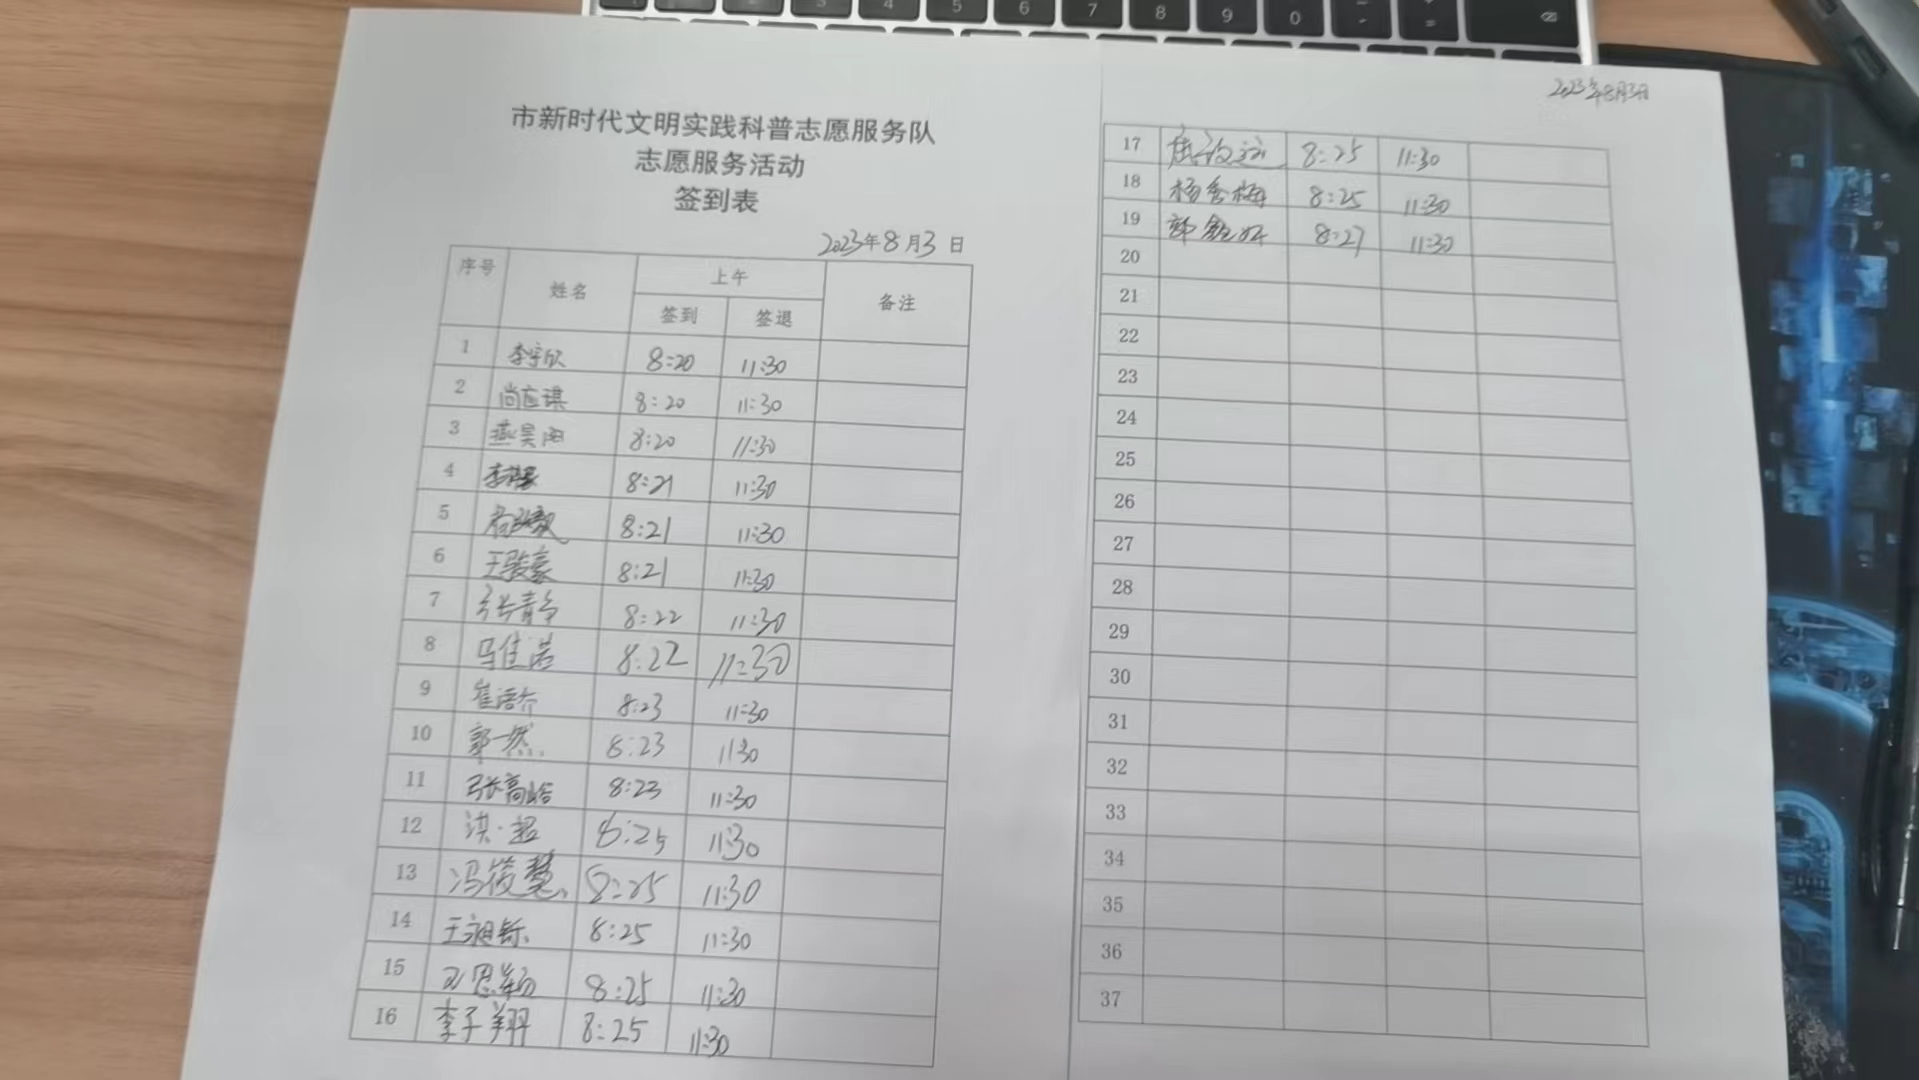 市新时代文明实践科普志愿服务队
志愿服务活动
签到表
2023年8月3日
序号 姓名 上午 备注
签到 签退
1 李宇欣 8:20 11:30
2 尚应琪 8:20 11:30
3 燕昊阳 8:20 11:30
4 李 8:21 11:30
5 8:21 11:30
6 王骏豪 8:21 11:30
7 张青 8:22 11:30
8 马佳诺 8:22 11:30
9 崔语 8:23 11:30
10 郭一然 8:23 11:30
11 张高皓 8:23 11:30
12 洪超 8:25 11:30
13 冯筱慧 8:25 11:30
14 王 8:25 11:30
15 思 8:25 11:30
16 李子翔 8:25 11:30
2023年8月3日
17 8:25 11:30
18 杨秀梅 8:25 11:30
19 郭 8:27 11:30
20
21
22
23
24
25
26
27
28
29
30
31
32
33
34
35
36
37